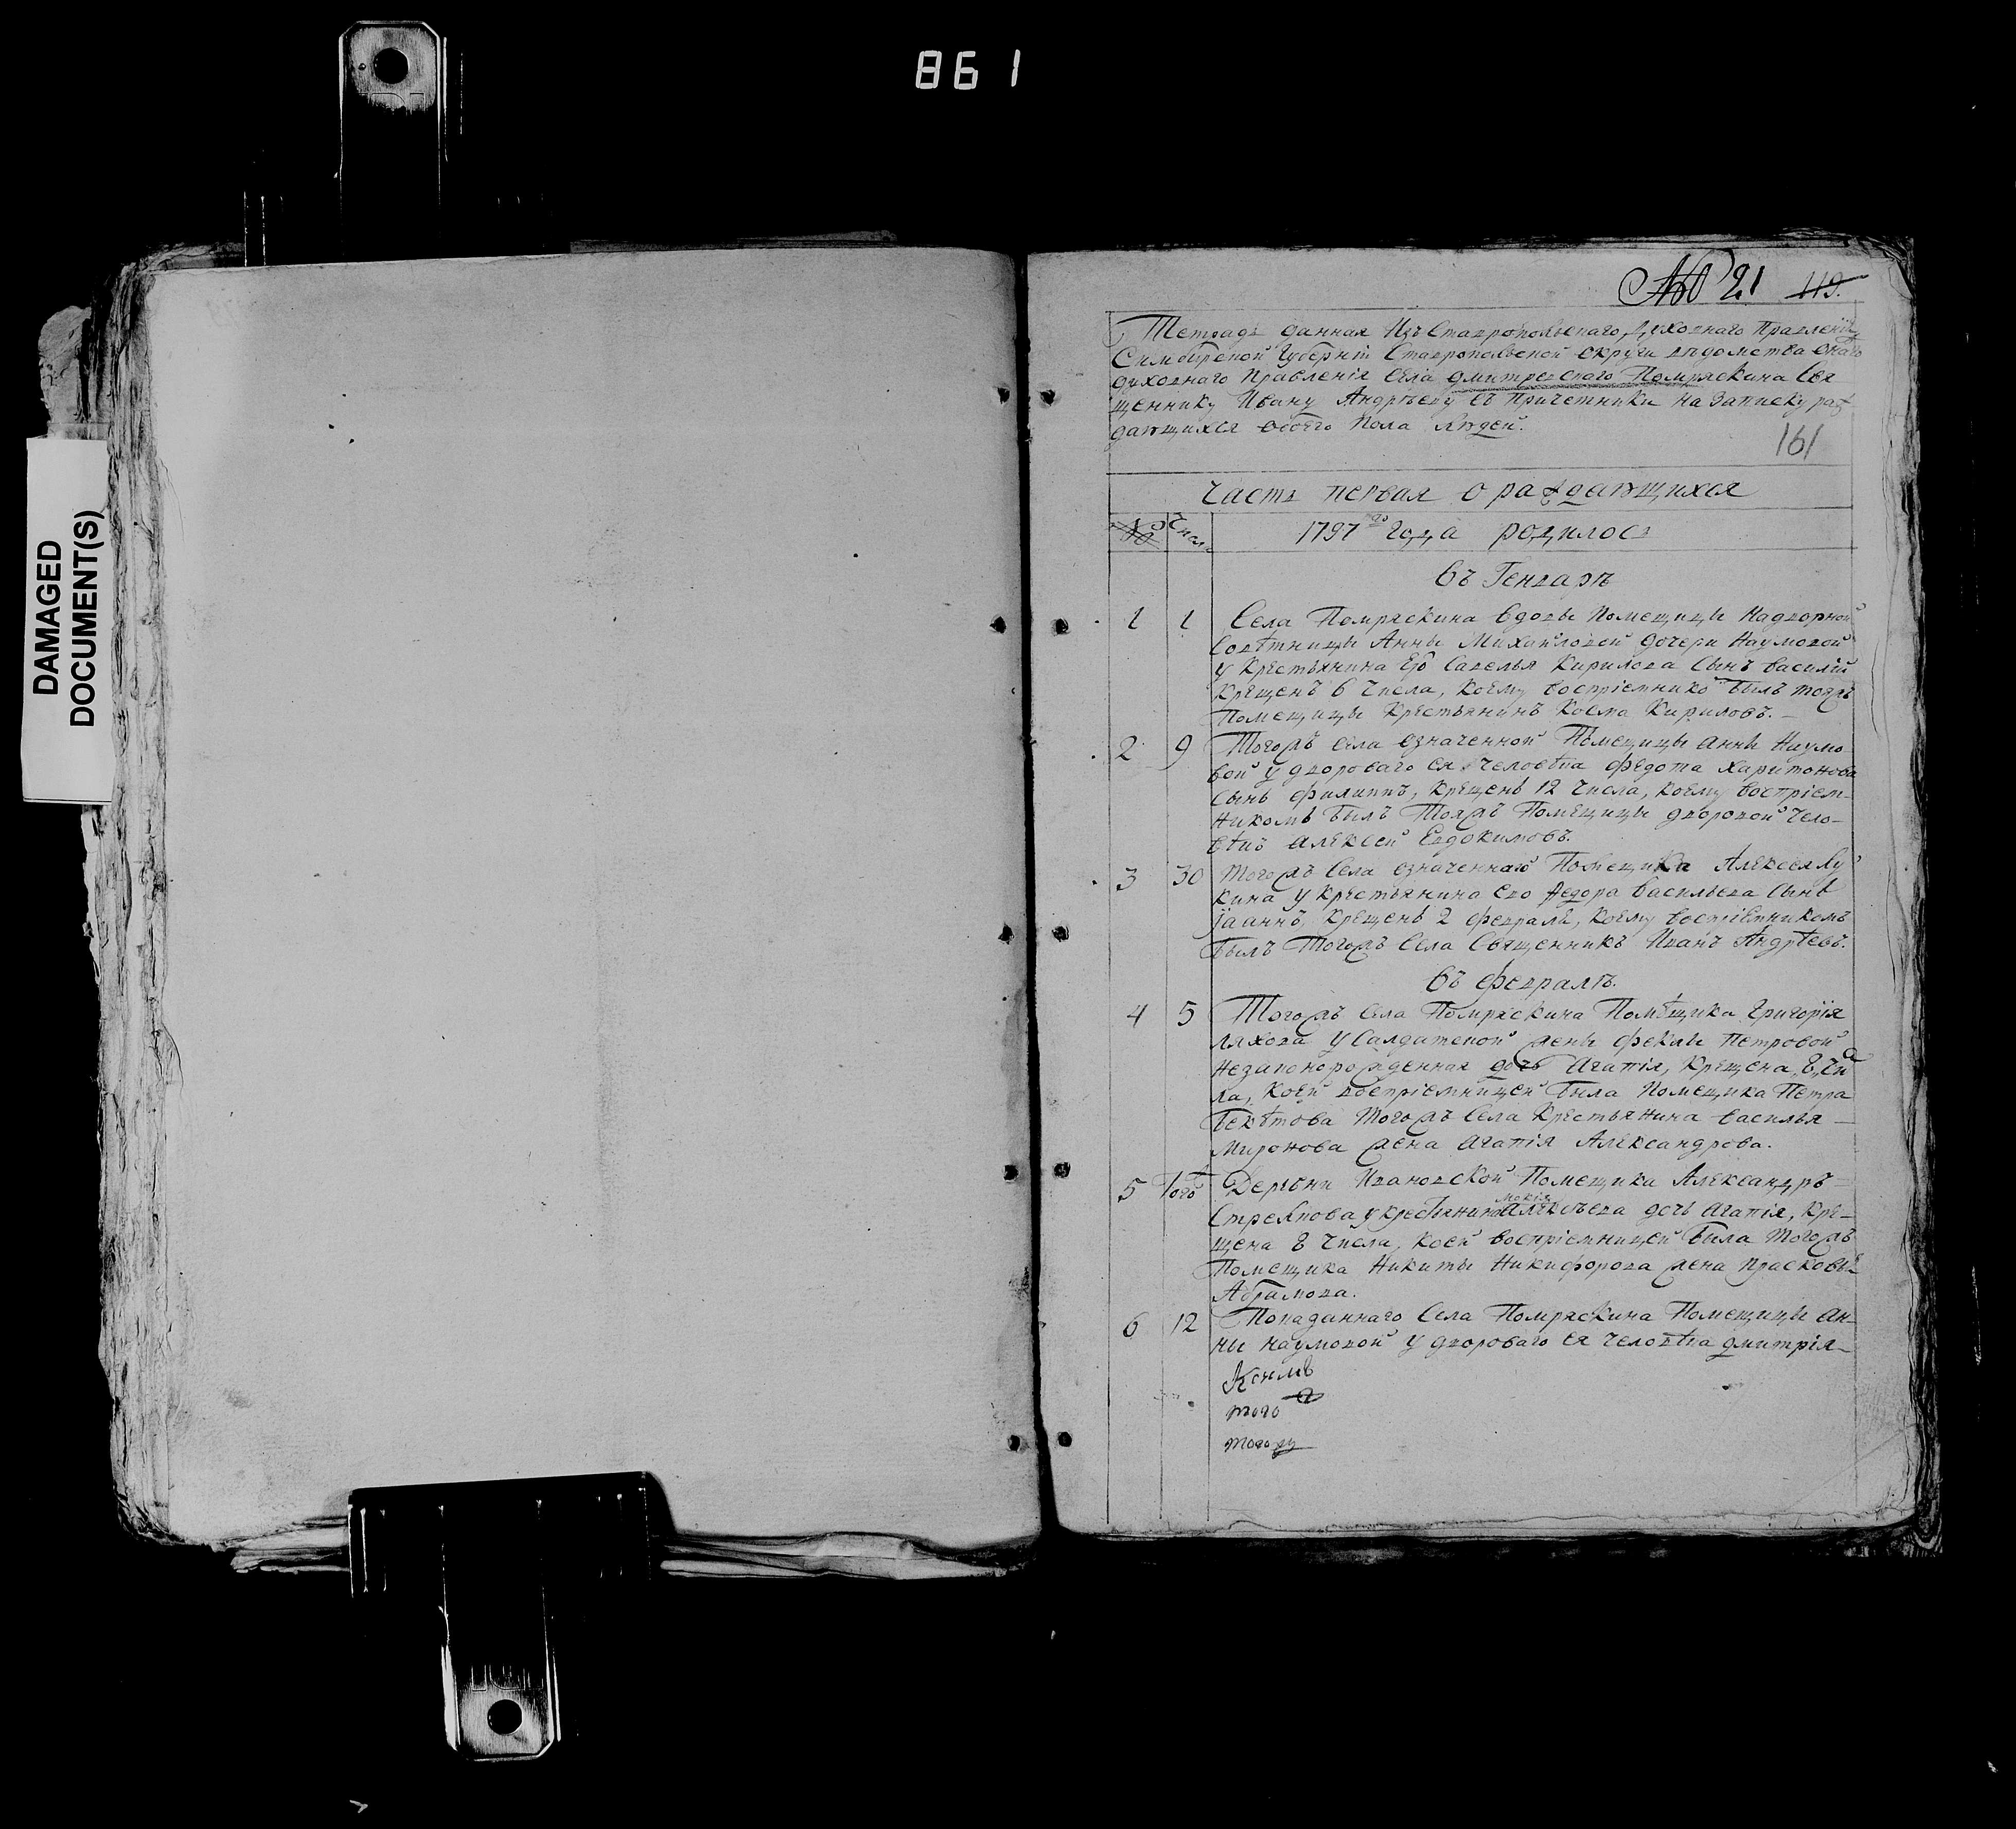 861
DAMAGED
DOCUMENT(S)
№ 21 119.
Тетрадь данная Изъ Ставропольскаго духовнаго Правленія
Симбирской Губерніи Ставропольской округи вѣдомства онаго
духовнаго Правленія Села Дмитревскаго Помряскина Свя
щеннику Ивану Андрѣеву съ Причетники на Записку раж
дающихся обоего Пола людей.
161
Часть первая о раждающихся
№ Числа 1797го года родилось
Въ Генваръ
1 1 Села Помряскина Вдовы Помещицы Надворной
Совѣтницы Анны Михайловой дочери Наумовой
у Крестьянина Ея Савелья Кирилова Сынъ Василій
Крещенъ 6 Числа, Коему воспріемнико былъ тояжъ
Помещицы Крестьянинъ Косма Кириловъ.
2 9 Тогожъ села означенной Помещицы Анны Наумо
вой у двороваго ея Человѣка Федота Харитонова
Сынъ Филиппъ, Крещенъ 12 Числа, Коему воспріем-
никомъ былъ Тояжъ Помещицы дворовой Чело-
вѣкъ Алексей Евдокимовъ.
3 30 Тогожъ Села означеннаго Помещика Алексея Лу
кина у Крестьянина его Федора Васильева Сынъ
Іааннъ Крещенъ 2 февраля, Коему воспріемникомъ
былъ Тогожъ Села Священникъ Иванъ Андрѣевъ.
Въ февралъ.
4 5 Тогожъ села Помряскина Помѣщика Григорія
Ляхова у Салдатской жены Феклы Петровой
незаконорожденная дочь Агапія, Крещена, 8, Чи
ла, Коей воспріемницей была Помещика Петра
Бекѣтова Тогожъ Села Крестьянина Василья
Миронова жена Агапія Александрова.
5 Того Деревни Ивановской Помещика Александръ
Стрелкова у крестьянина дочь Агапія, Кре-
щена 8 Числа, коей воспріемницей была Тогожъ
Помещика Никиты Никифорова жена Прасковья
Абрамова.
6 12 Вонаданнаго Села Помряскина Помещицы Ан-
ны Наумовой у двороваго ея Человѣка Дмитрія
того